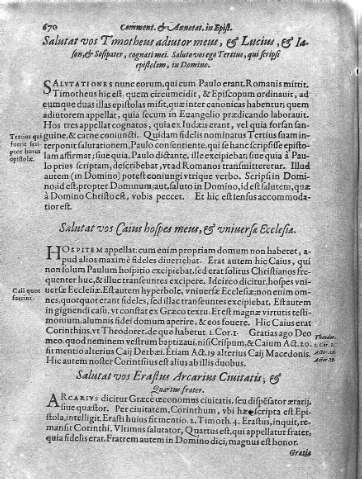 670 Comment. & Annotat. in Epist.
Salutat vos Timotheus adiutor meus, & Lucius, & Ia-
son, & Sosipater, cognati mei. Saluto vos ego Tertius, qui scripsi
epistolam, in Domino.
SALVTATIONES nunc eorum, qui cum Paulo erant, Romanis mittit.
Timotheus hic est, quem circumcidit, & Episcopum ordinauit, ad
eumque duas illas epistolas misit, quæ inter canonicas habentur; quem
adiutorem appellat, quia secum in Euangelio prædicando laborauit.
Hos tres appellat cognatos, quia ex Iudæis erant, vel quia forsan san-
guine, & carne coniuncti. Quidam fidelis nominatus Tertius suam in-
terponit salutationem, Paulo consentiente, qui se hanc scripsisse episto-
lam affirmat; siue quia Paulo dictante, ille excipiebat; siue quia à Pau-
lo prius scriptam, describebat, vt ad Romanos transmitteretur. Illud
autem (in Domino) potest coniungi vtrique verbo. Scripsi in Domi-
no id est, propter Dominum, aut, saluto in Domino, id est, salutem, quæ
à Domino Christo est, vobis peccet. Et hic est sensus accommoda-
tior est.
Tertius qui
fuerit scri-
ptor huius
epistolæ.
Salutat vos Caius hospes meus, & vniuersæ Ecclesiæ.
HOSPITEM appellat: cum enim propriam domum non haberet, a-
pud alios maxime fideles diuertebat. Erat autem hic Caius, qui
non solum Paulum hospitio excipiebat, sed erat solitus Christianos fre-
quenter huc, & illuc transeuntes excipere. Ideirco dicitur, hospes vni-
uersæ Ecclesiæ. Est autem hyperbole, vniuersæ Ecclesiæ: non enim om-
nes, quotquot erant fideles, sed illac transeuntes excipiebat. Est autem
in gignendi casu, vt constat ex Græco textu. Erat est magnæ virtutis testi-
monium, alumnis fidei domum aperire, & eos fouere. Hic Caius erat
Corinthius, vt Theodoret. de quo habetur 1. Cor. 1. Gratias ago Deo
meo, quod neminem vestrum baptizaui, nisi Crispum, & Caium Act. 20.
fit mentio alterius Caij Derbæi. Etiam Act. 19 alterius Caij Macedonis.
Hic autem noster Corinthius est alius ab illis duobus.
Caij qui
fuerint.
Theodor.
1. Cor. 1.
Salutat vos Erastus Arcarius Ciuitatis, &
Quartus frater.
ARCARIVS dicitur Græce œconomus ciuitatis, seu dispensator ærarij,
siue quæstor. Per ciuitatem, Corinthum, vbi hæc scripta est Epi-
stola, intelligit. Erasti huius fit mentio. 2. Timoth. 4. Erastus, inquit, re-
mansit Corinthi. Vltimus salutator, Quartus est, qui appellatur frater,
quia fidelis erat. Fratrem autem in Domino dici, magnus est honor.
Gratia